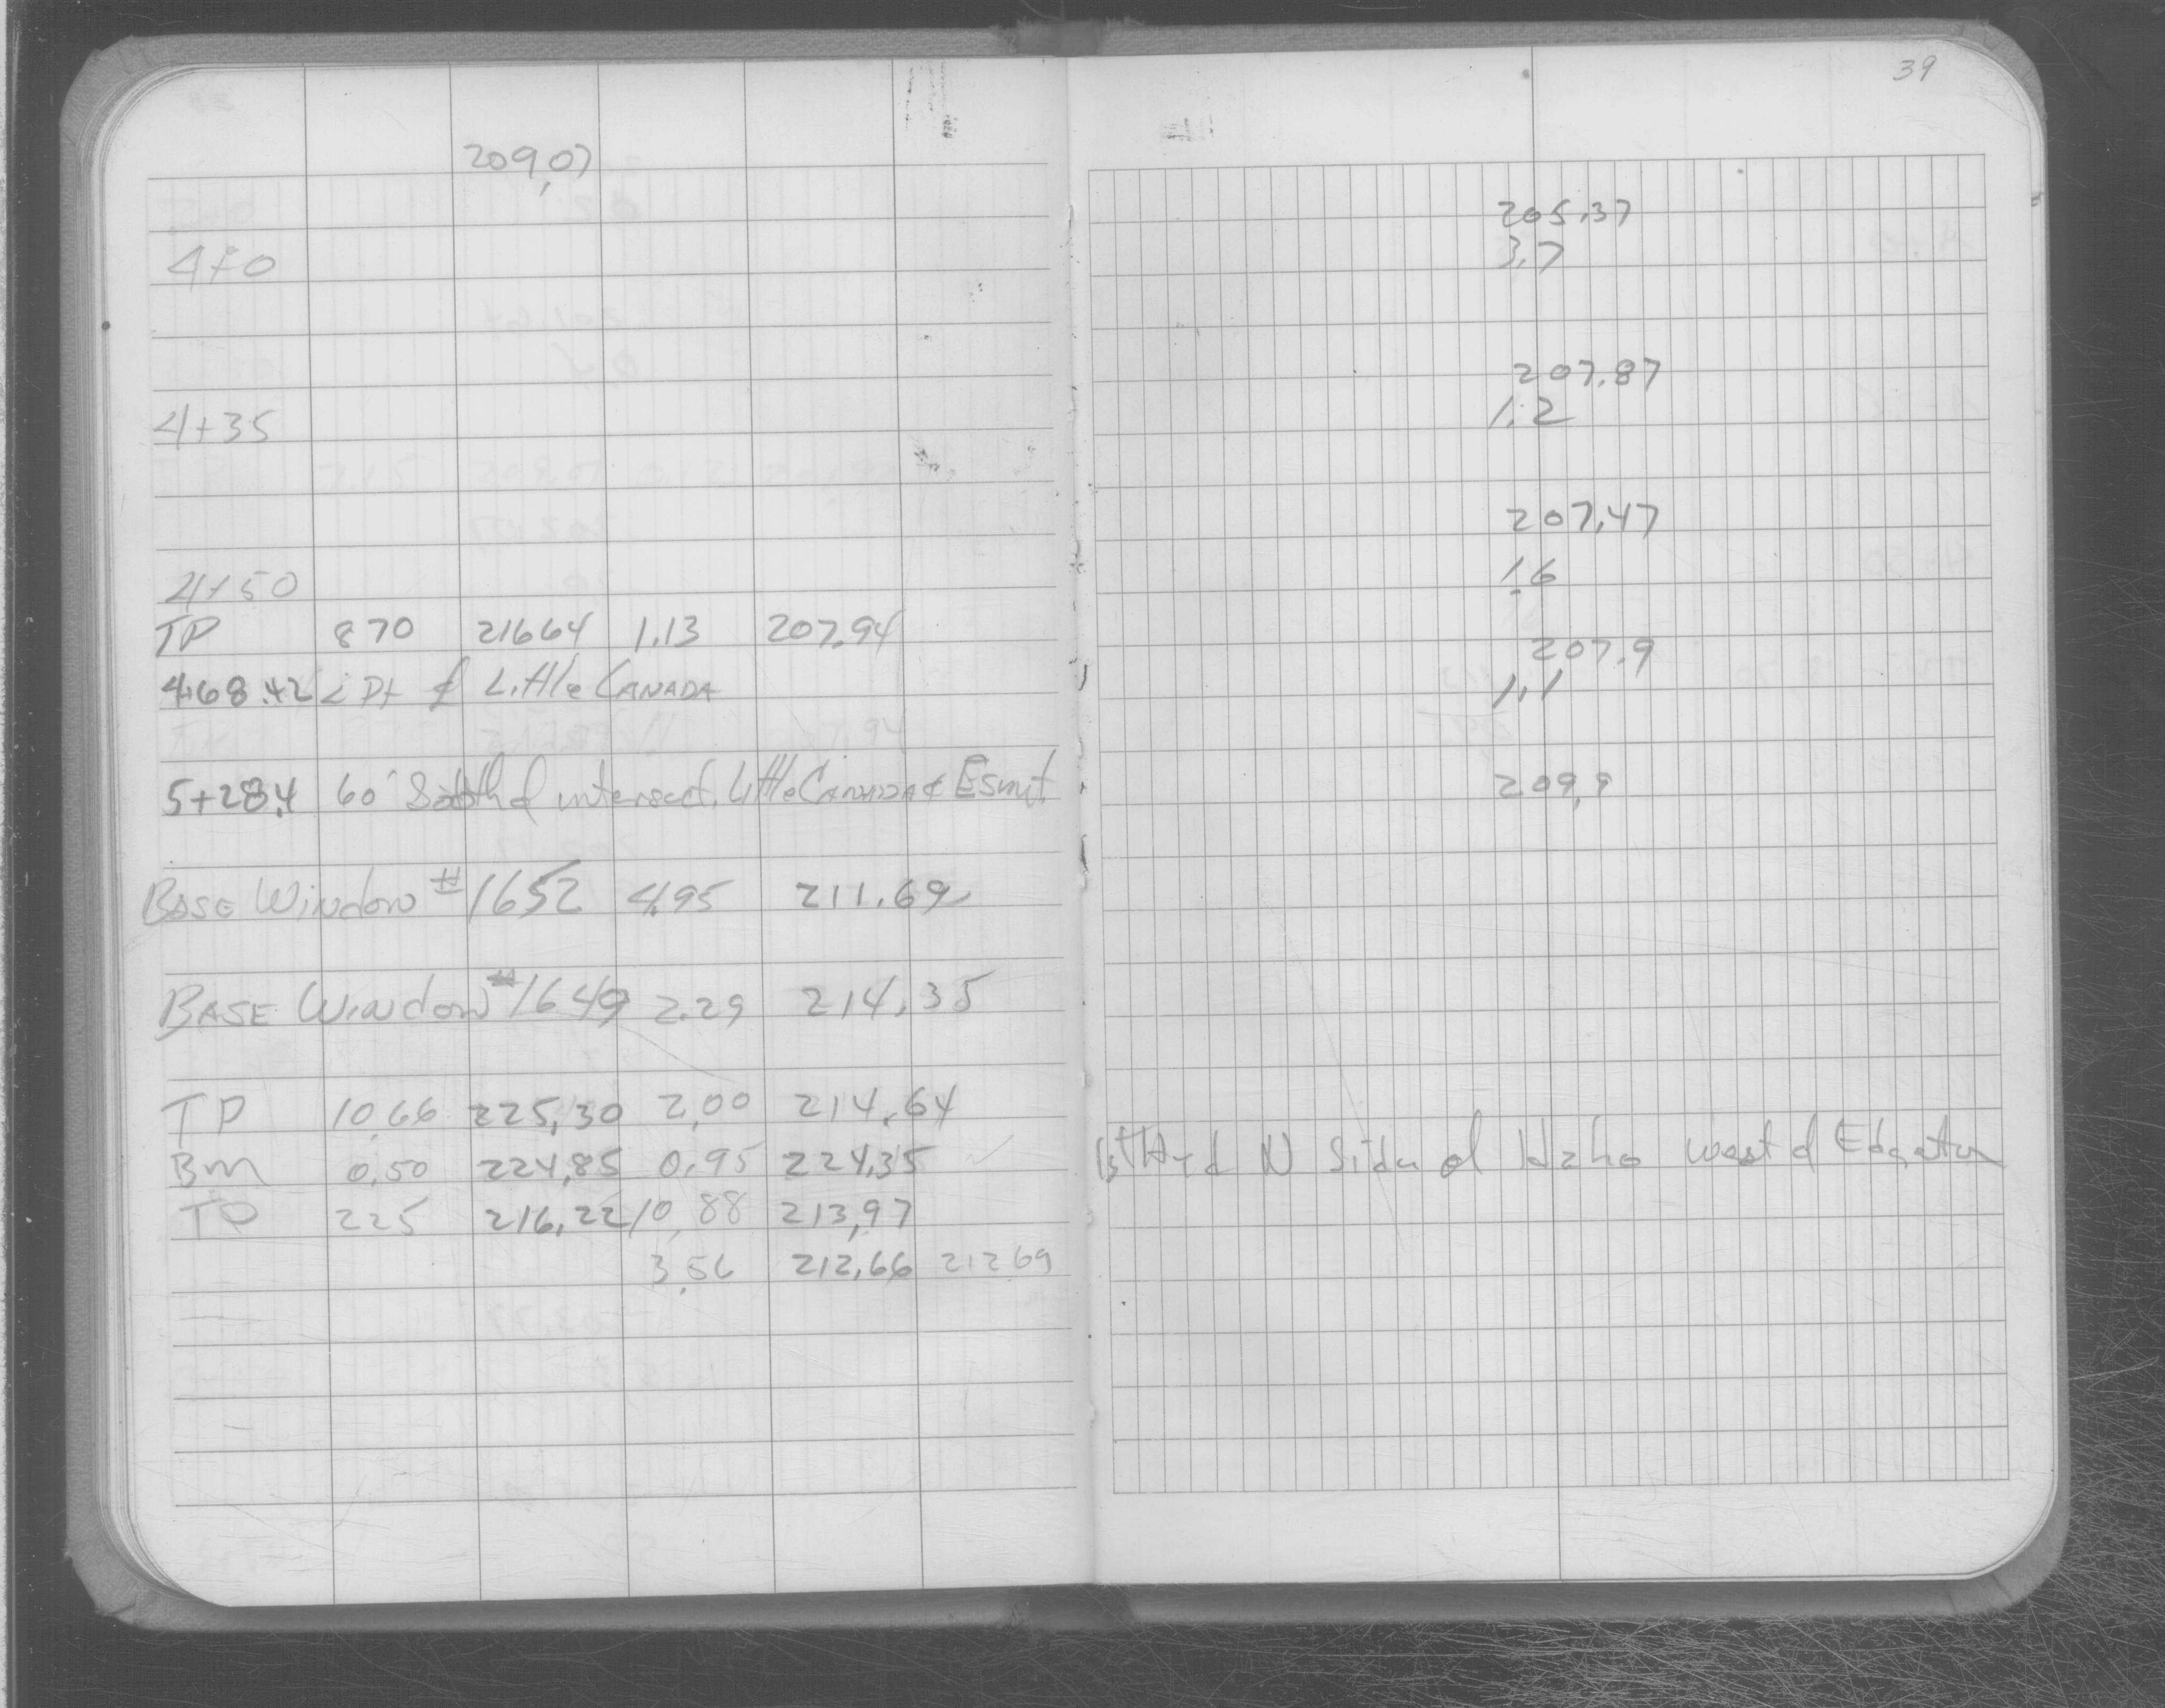 39
209,07
205.37
4+0 3.7
207.87
4+35 1.2
207.47
4+50 1.6
TP 870 21664 1.13 207.94
207.9
4+68.42 < Pt of Little CANADA 1.1
5+28.4 60' South of intersect. Little CANADA & Esmit 209,9
BASE Window #1652 4.95 211.69
BASE Window #1649 2.29 214.35
TP 10,66 225,30 2,00 214.64
Bm 0,50 224,85 0,95 224,35 1st Hyd N Side of Idaho west of Edgerton
TP 225 216,22 10,88 213,97
3,56 212,66 21269